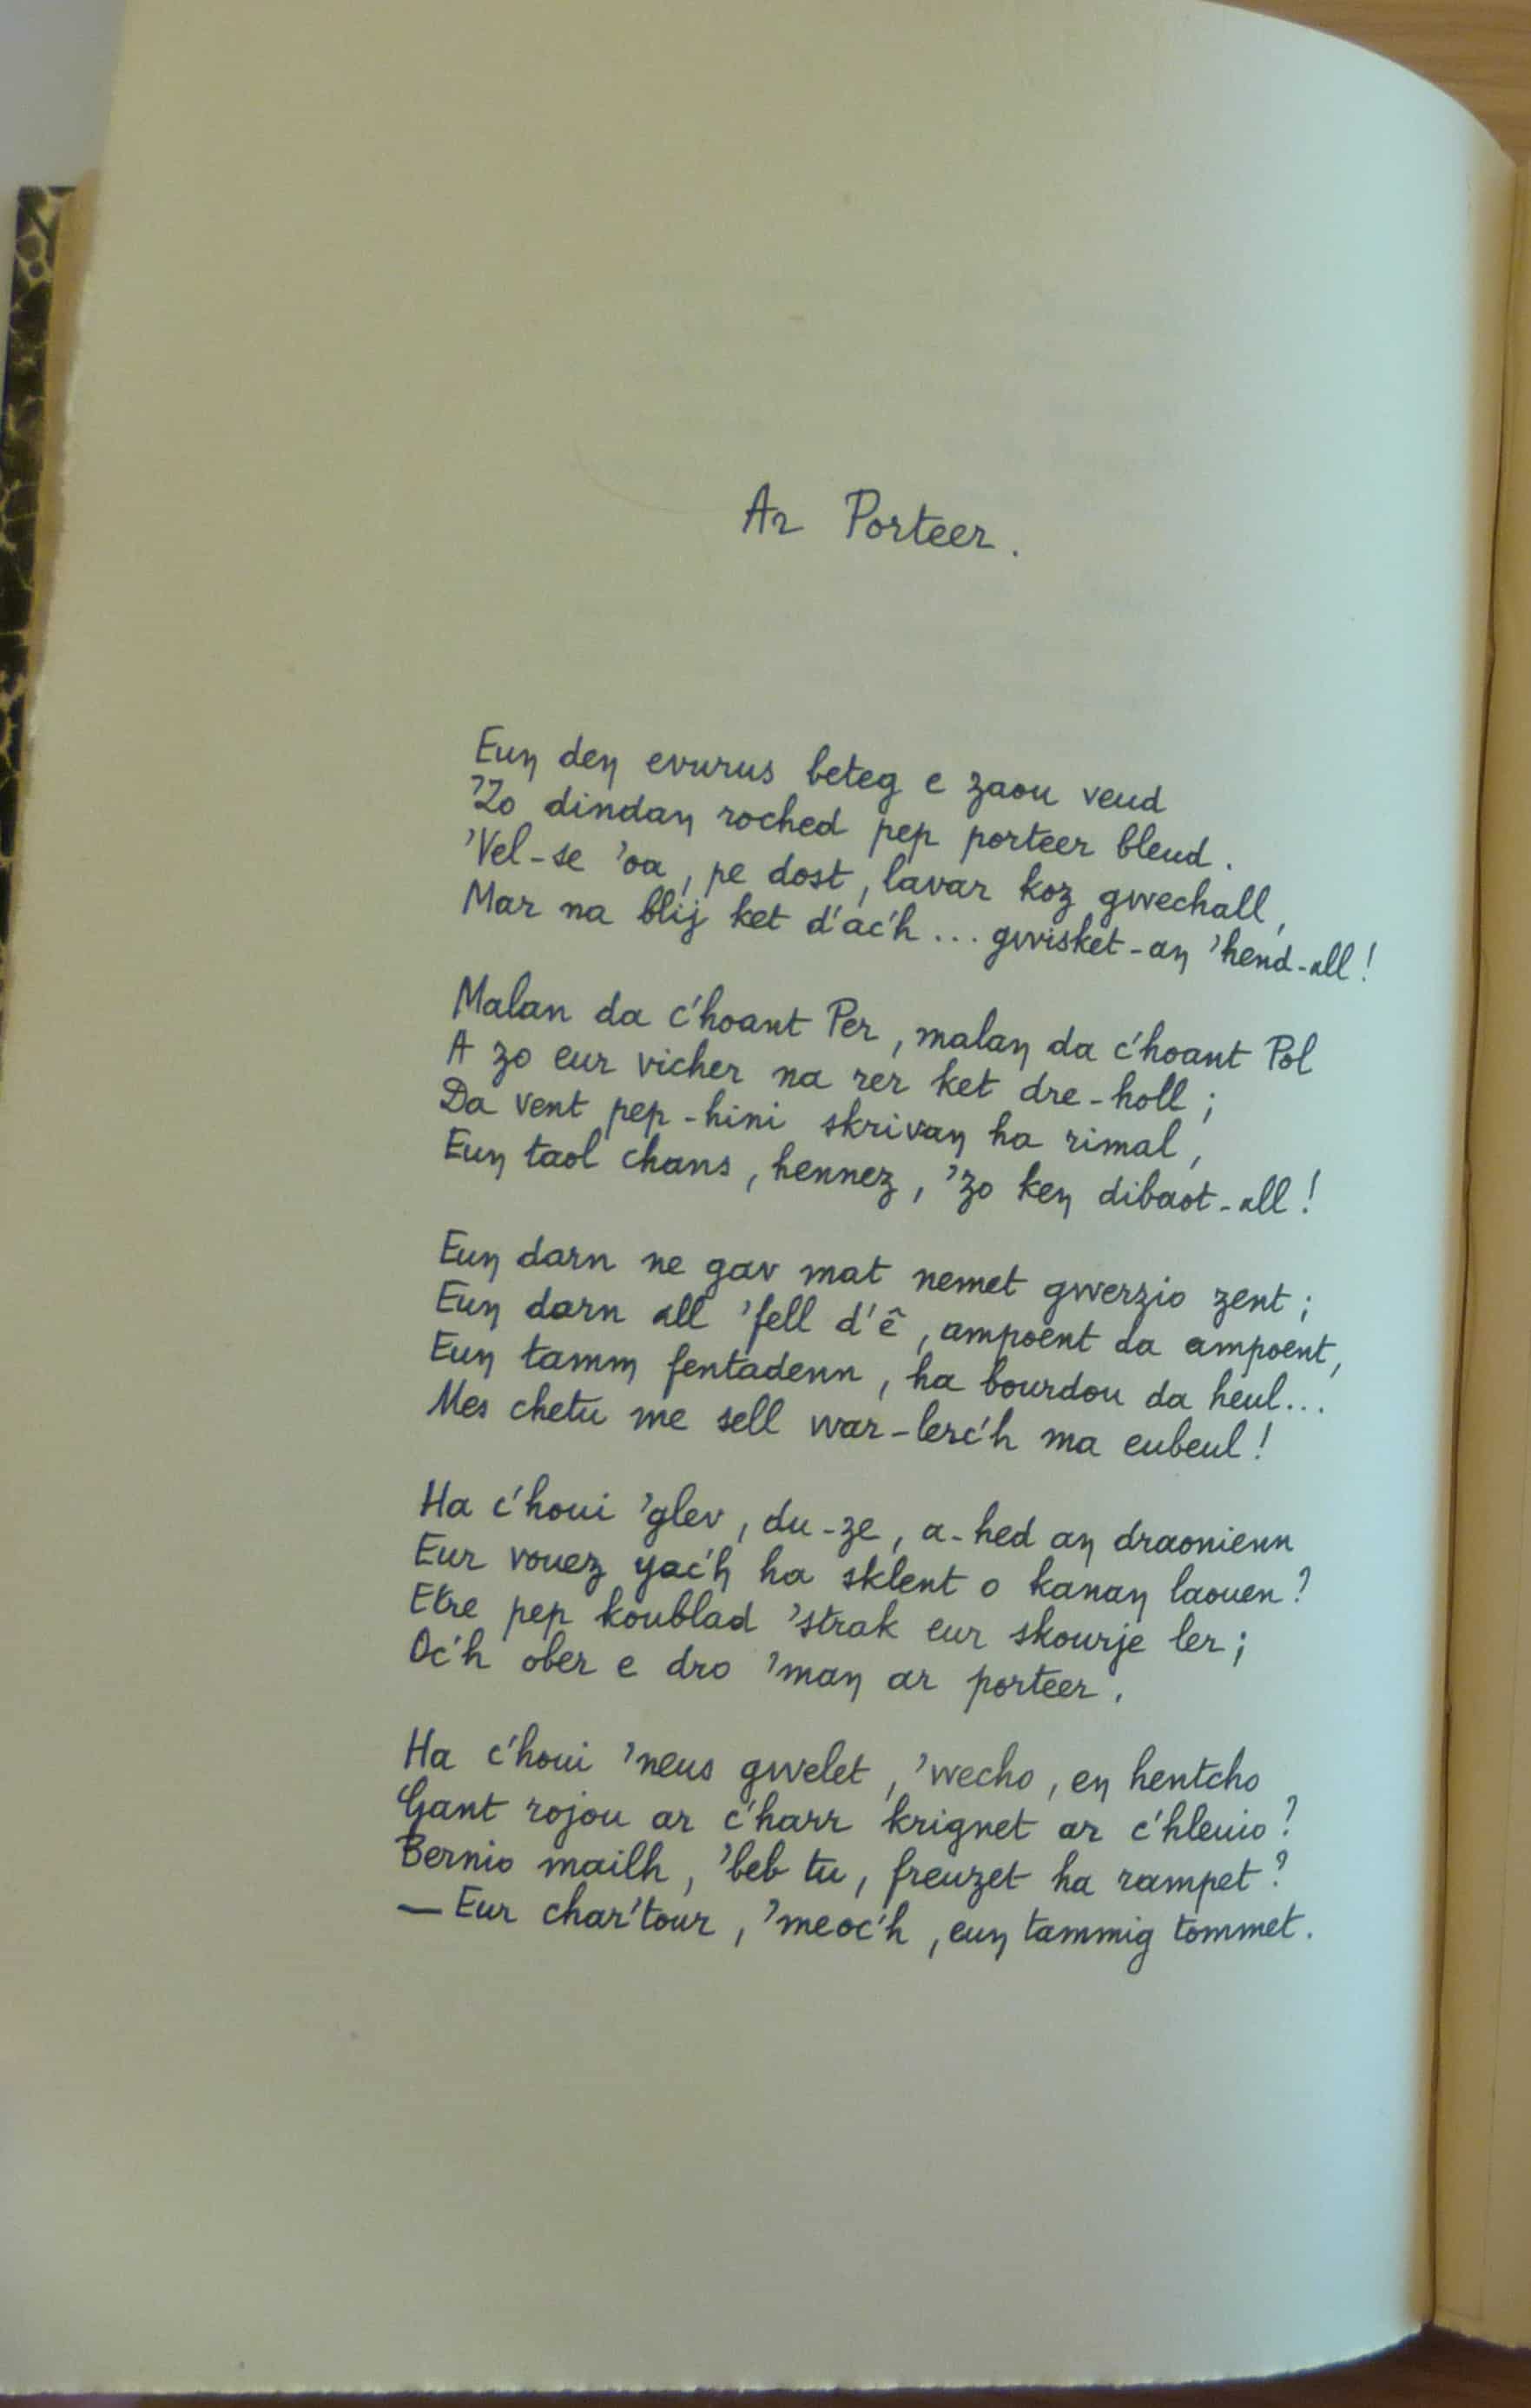 Ar Porteer.
Euŋ deŋ evurus beteg e zaou veud
'Zo dindaŋ roched pep porteer bleud.
'Vel-se 'oa, pe dost, lavar koz gwechall,
Mar na blij ket d'ac'h... gwisket-aŋ 'hend-all!
Malan da c'hoant Per, malaŋ da c'hoant Pol
A zo eur vicher na rer ket dre-holl;
Da vent pep-hini skrivaŋ ha rimal,
Euŋ taol chans, hennez, 'zo keŋ dibaot-all!
Euŋ darn ne gav mat nemet gwerzio zent;
Euŋ darn all 'fell d'ê, ampoent da ampoent,
Euŋ tamm fentadenn, ha bourdou da heul...
Mes chetu me sell war-lerc'h ma eubeul!
Ha c'houi 'glev, du-ze, a-hed aŋ draonienn
Eur vouez yac'h ha sklent o kanaŋ laouen?
Etre pep koublad 'strak eur skourje ler;
Oc'h ober e dro 'maŋ ar porteer.
Ha c'houi 'neus gwelet, 'wecho, eŋ hentcho
Gant rojou ar c'harr krignet ar c'hleuio?
Bernio mailh, 'beb tu, freuzet ha rampet?
— Eur char'tour, 'meoc'h, euŋ tammig tommet.